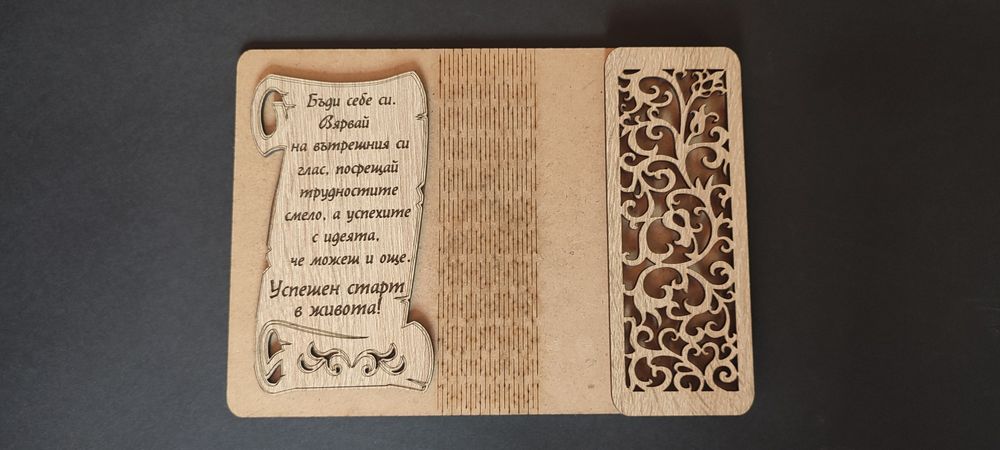 Бъди себе си.
Вярвай
на вътрешния си
глас, посрещай
трудностите
смело, а успехите
с идеята,
че можеш и още.
Успешен старт
в живота!